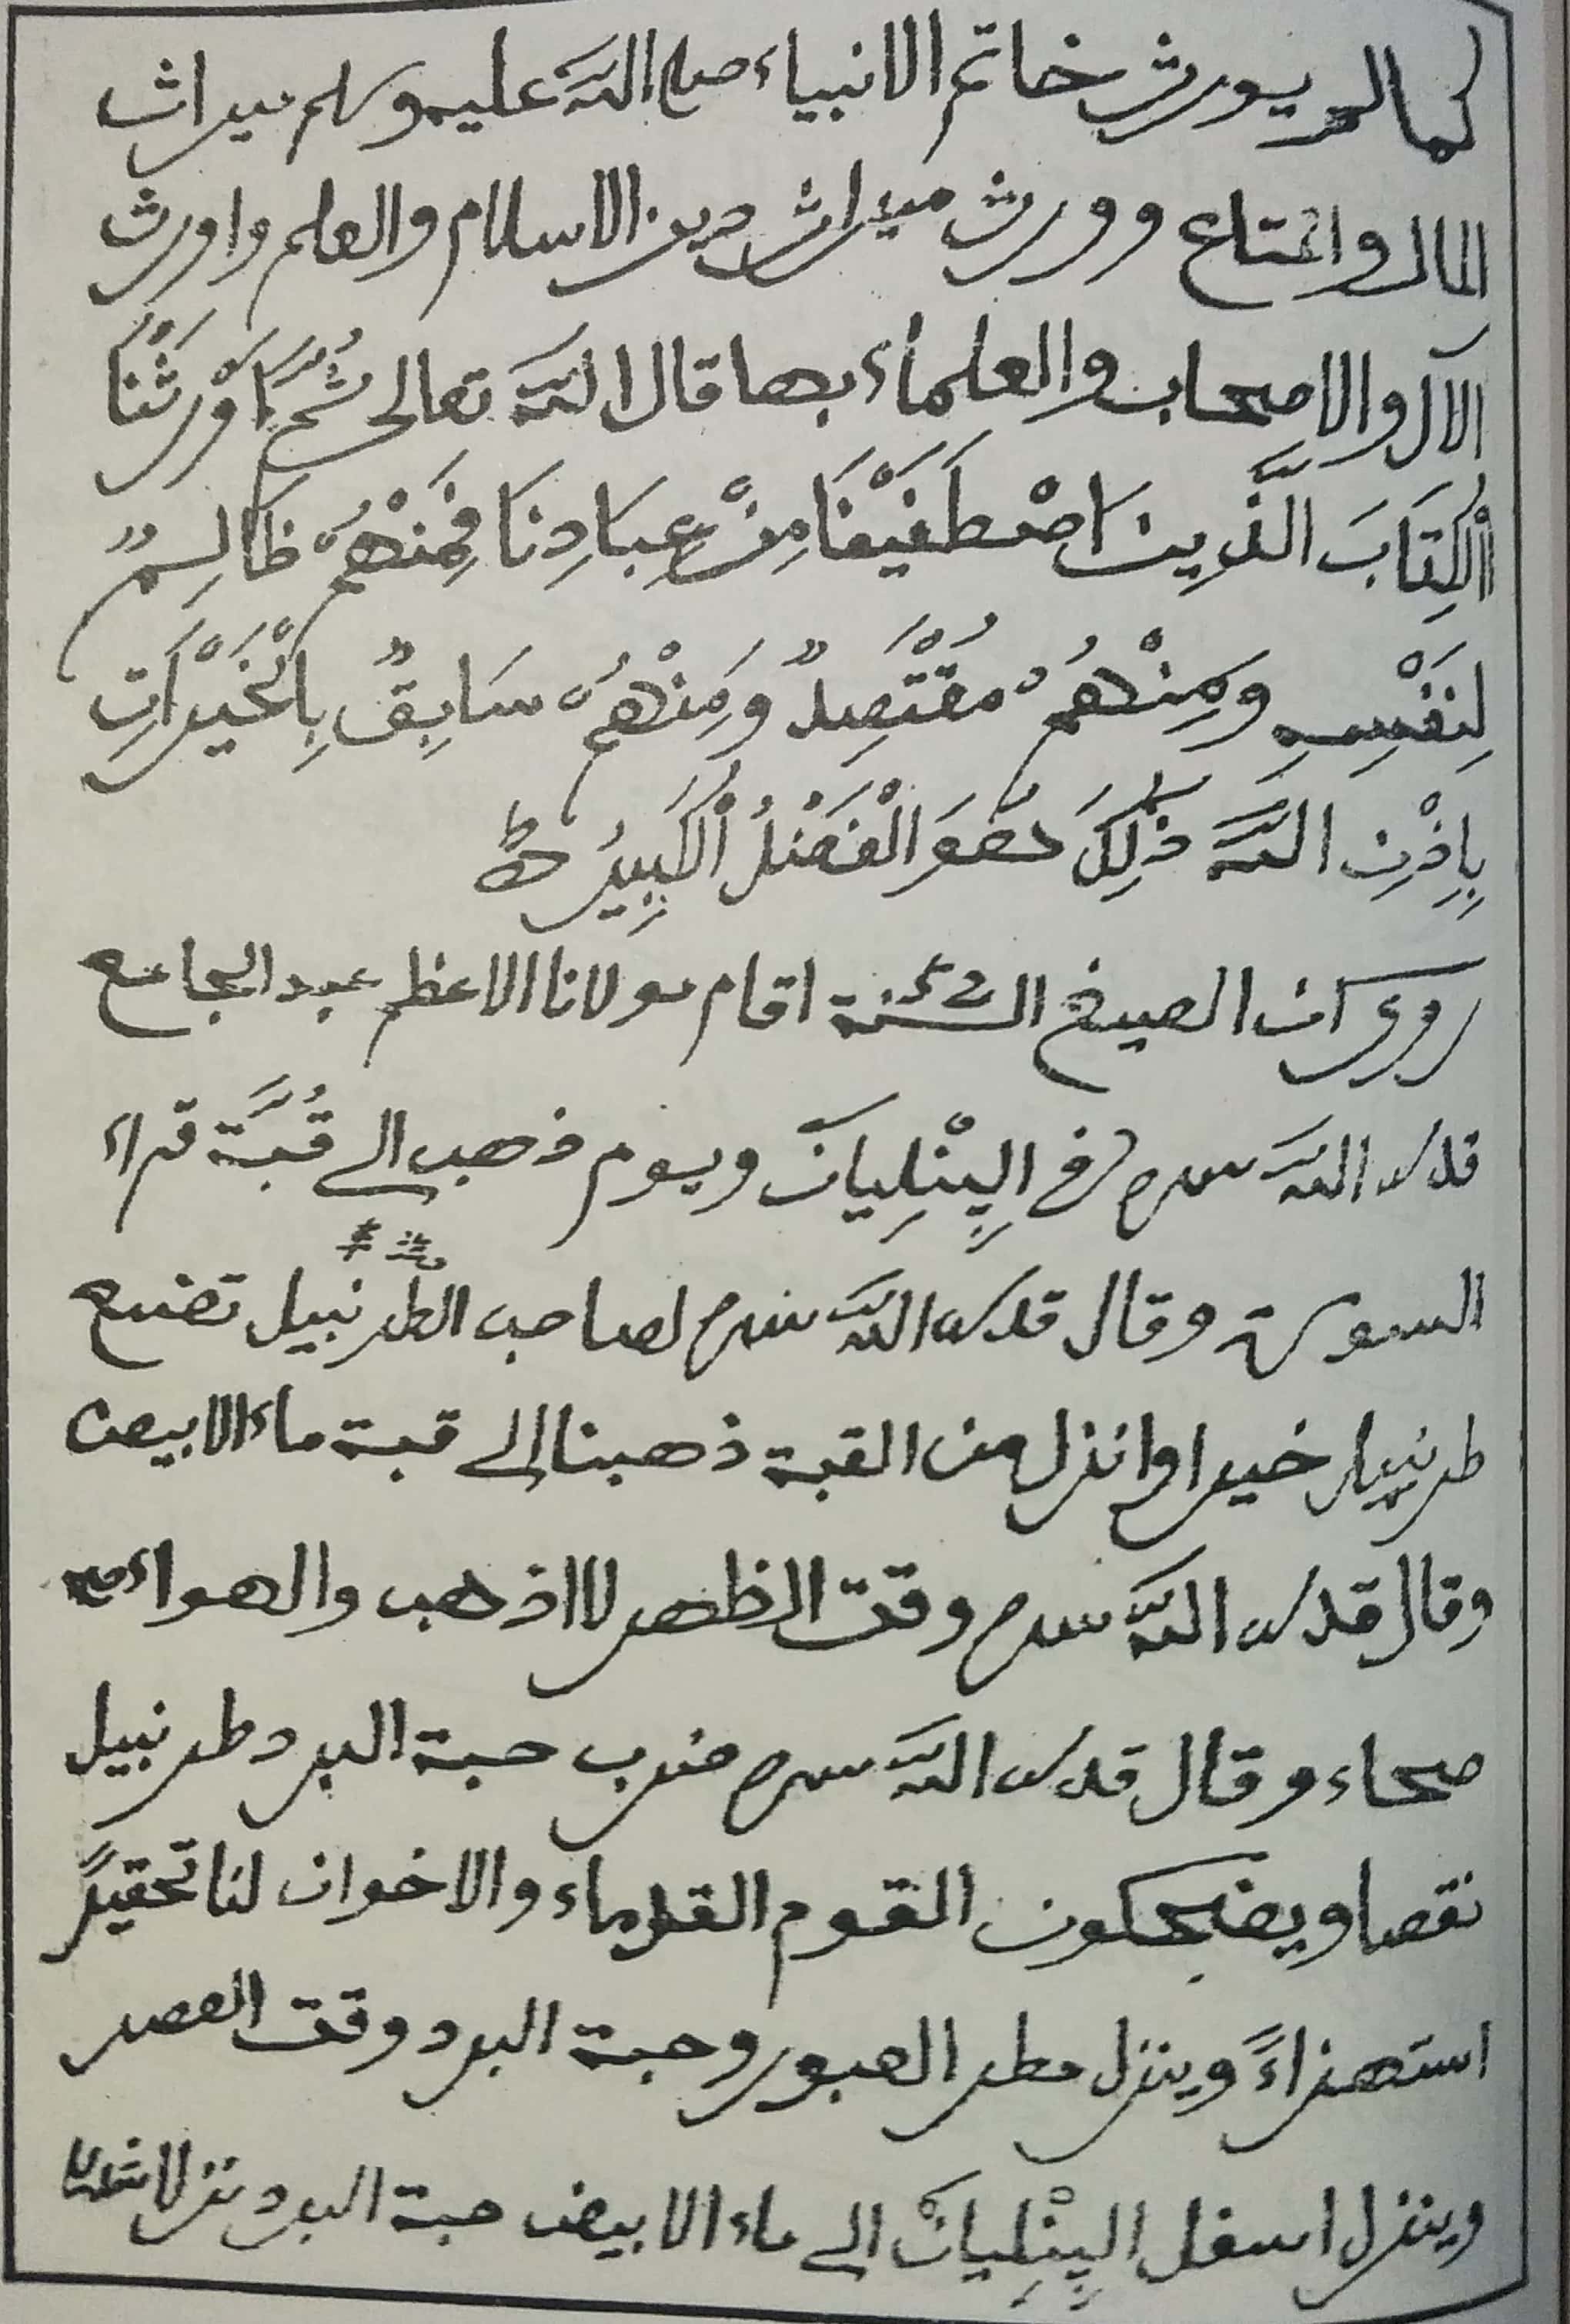 كما لم يورث خاتم الانبياء صلى الله عليه وسلم ميراث
المال والمتاع وورث ميراث دين الاسلام والعلم واورث
الآل والاصحاب والعلماء بها قال الله تعالى ثُمَّ اَوْرَثْنَا
الْكِتَابَ الَّذِينَ اصْطَفَيْنَا مِنْ عِبَادِنَا فَمِنْهُمْ ظَالِمٌ
لِنَفْسِهِ وَمِنْهُمْ مُقْتَصِدٌ وَمِنْهُمْ سَابِقٌ بِالْخَيْرَاتِ
بِاِذْنِ اللَّهِ ذٰلِكَ هُوَ الْفَضْلُ الْكَبِيرُ ط
روى ان الصيف السنة اقام مولانا الاعظم عبد الجامع
قدس الله سره في البِنْلِيانْ ويوم ذهب الى قُبَّة قراء
السورة وقال قدس الله سره لصاحب الطرنبيل تضيع
طرنبيل خيرا وانزل من القبة ذهبنا الى قبة ماء الابيض
وقال قدس الله سره وقت الظهر لا اذهب والهواء
صحاء وقال قدس الله سره ضرب حبة البرد طرنبيل
نقصا ويضحكون القوم القدماء والاخوان لنا تحقيرً
استهزاءً وينزل مطر العبور وحبة البرد وقت العصر
وينزل اسفل البِنْلِيانْ الى ماء الابيض حبة البرد نزلا شديدا